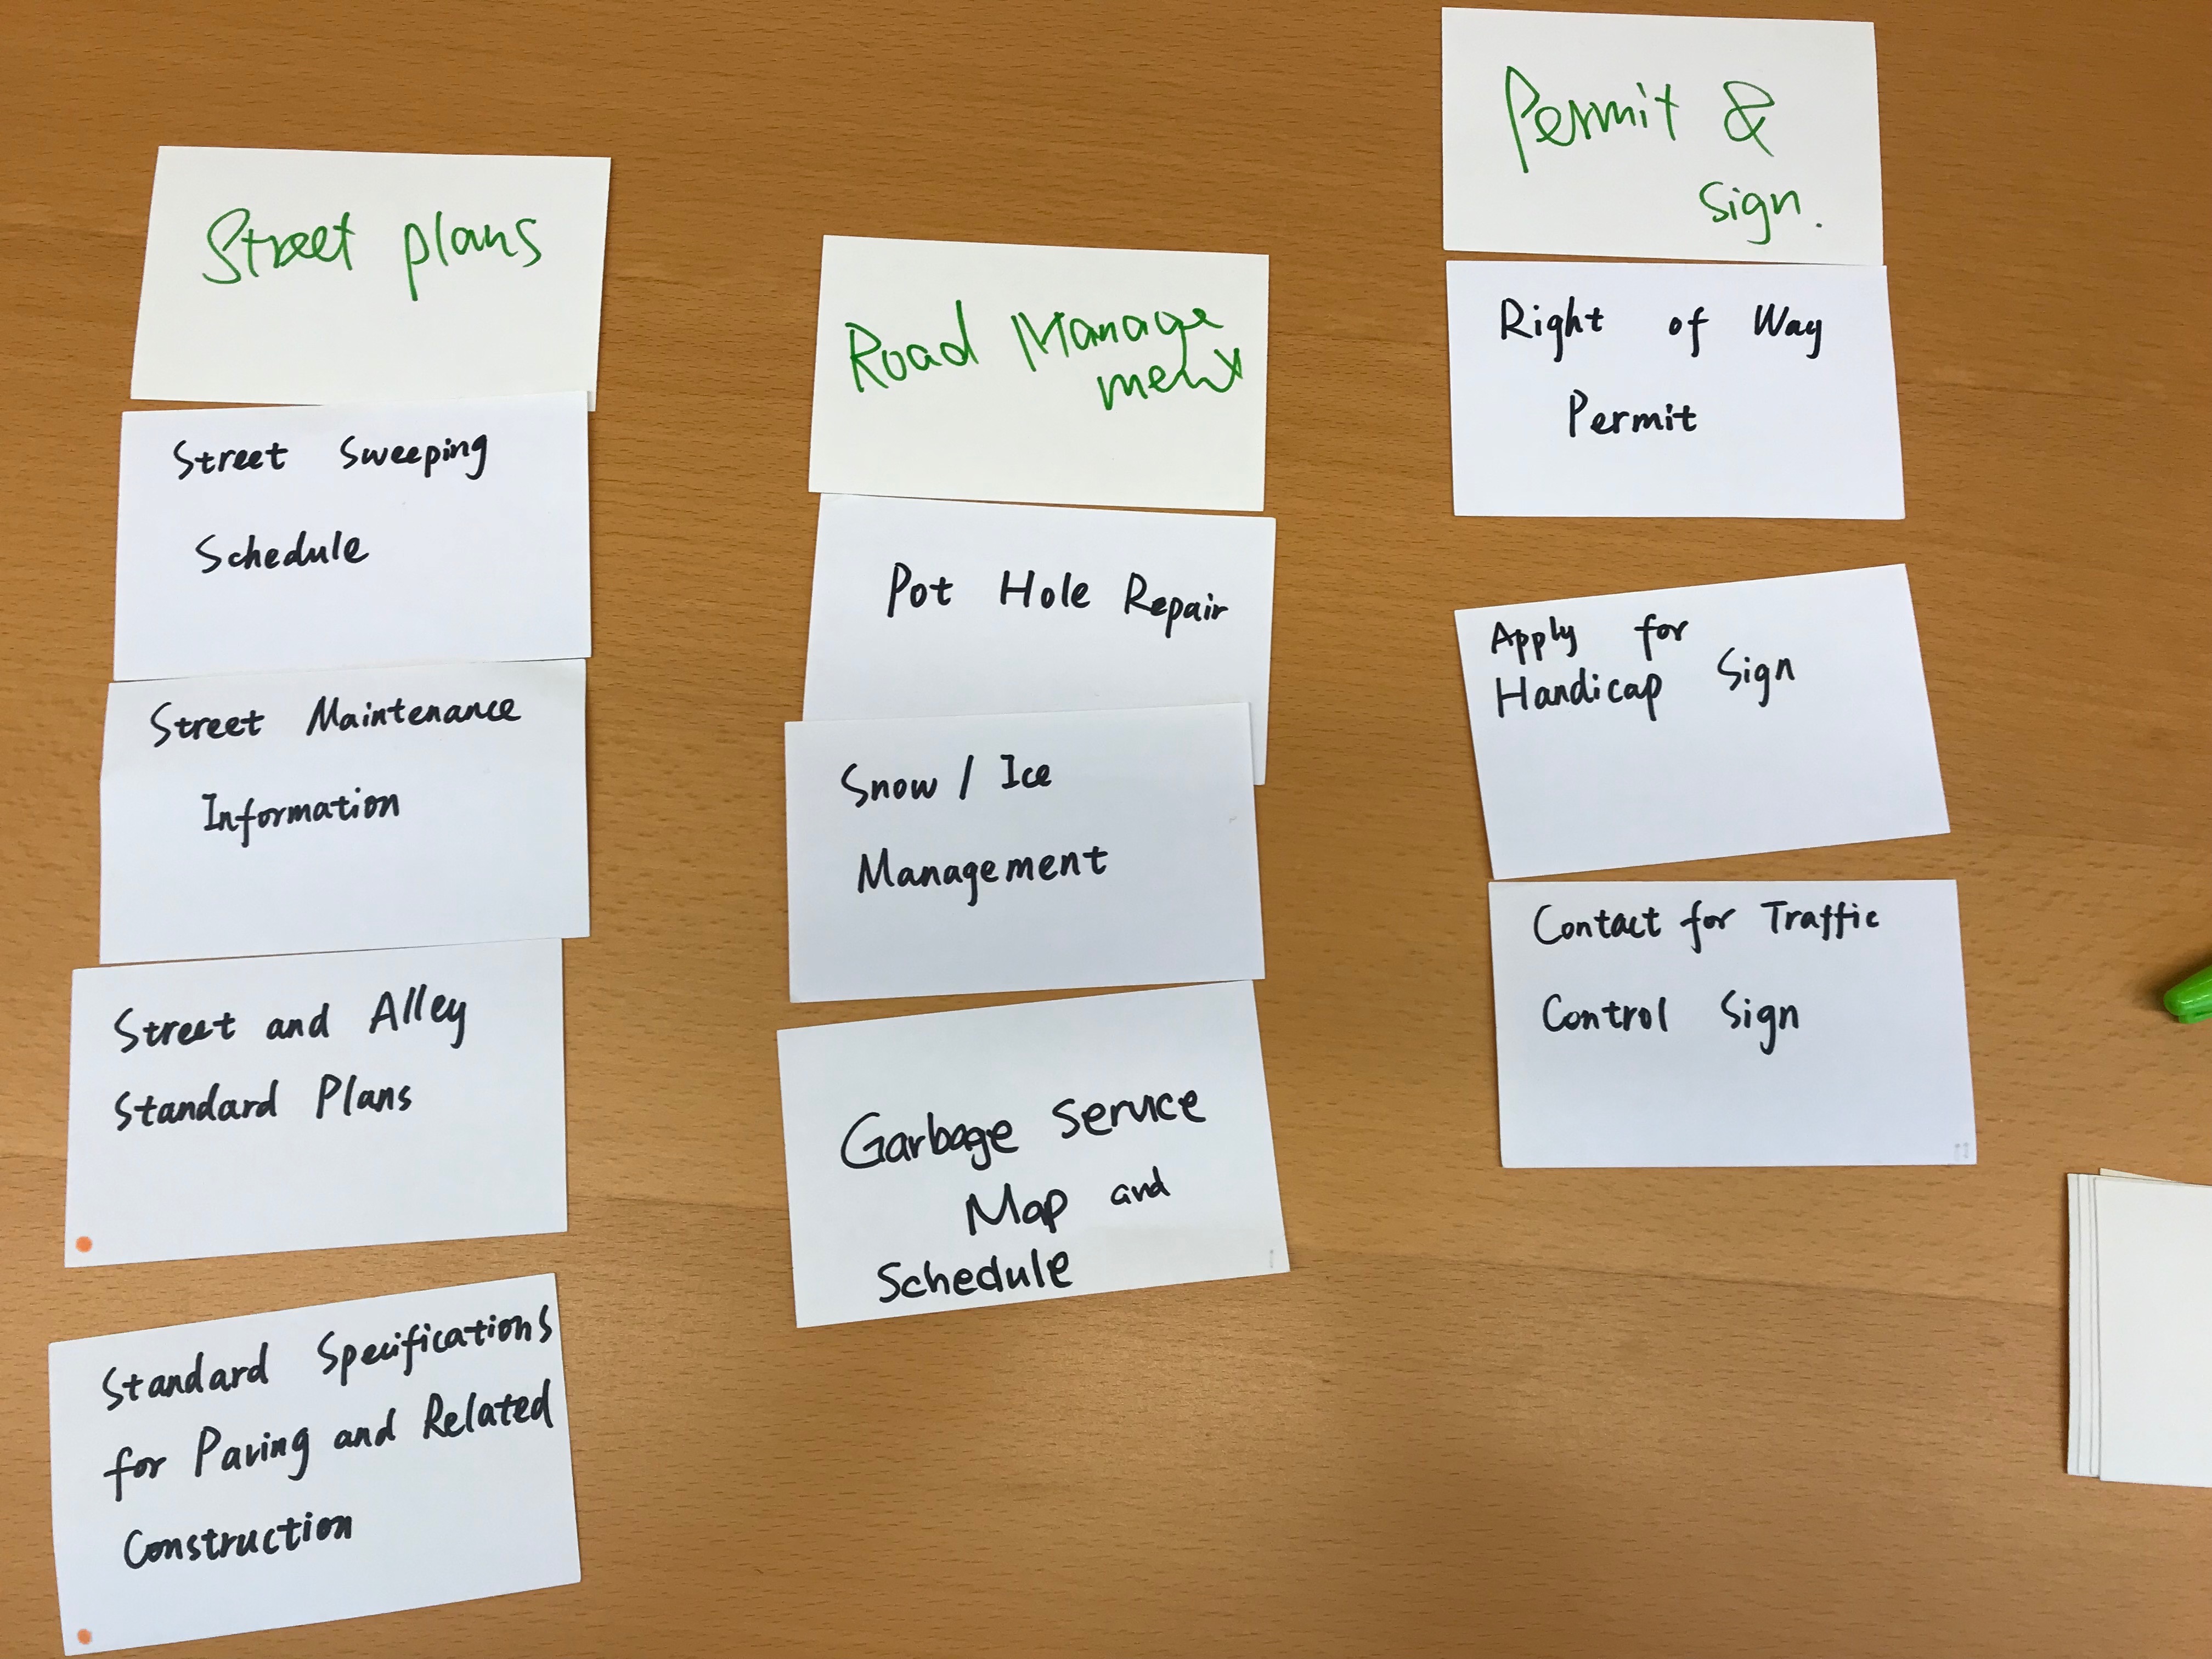 Street plans
Street Sweeping
Schedule
Street Maintenance
Information
Street and Alley
Standard Plans
Standard Specifications
for Paving and Related
Construction
Road Manage
ment
Pot Hole Repair
Snow / Ice
Management
Garbage Service
Map and
Schedule
Permit &
Sign.
Right of Way
Permit
Apply for
Handicap Sign
Contact for Traffic
Control Sign